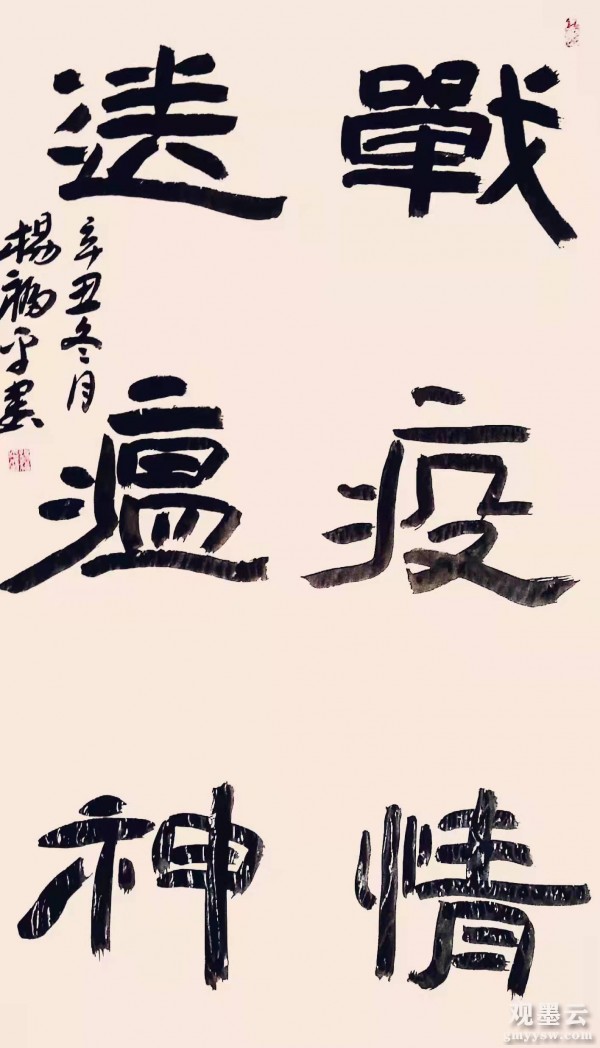 戰疫情
送瘟神
辛丑冬月
楊福平書
观墨云
gmyysw.com